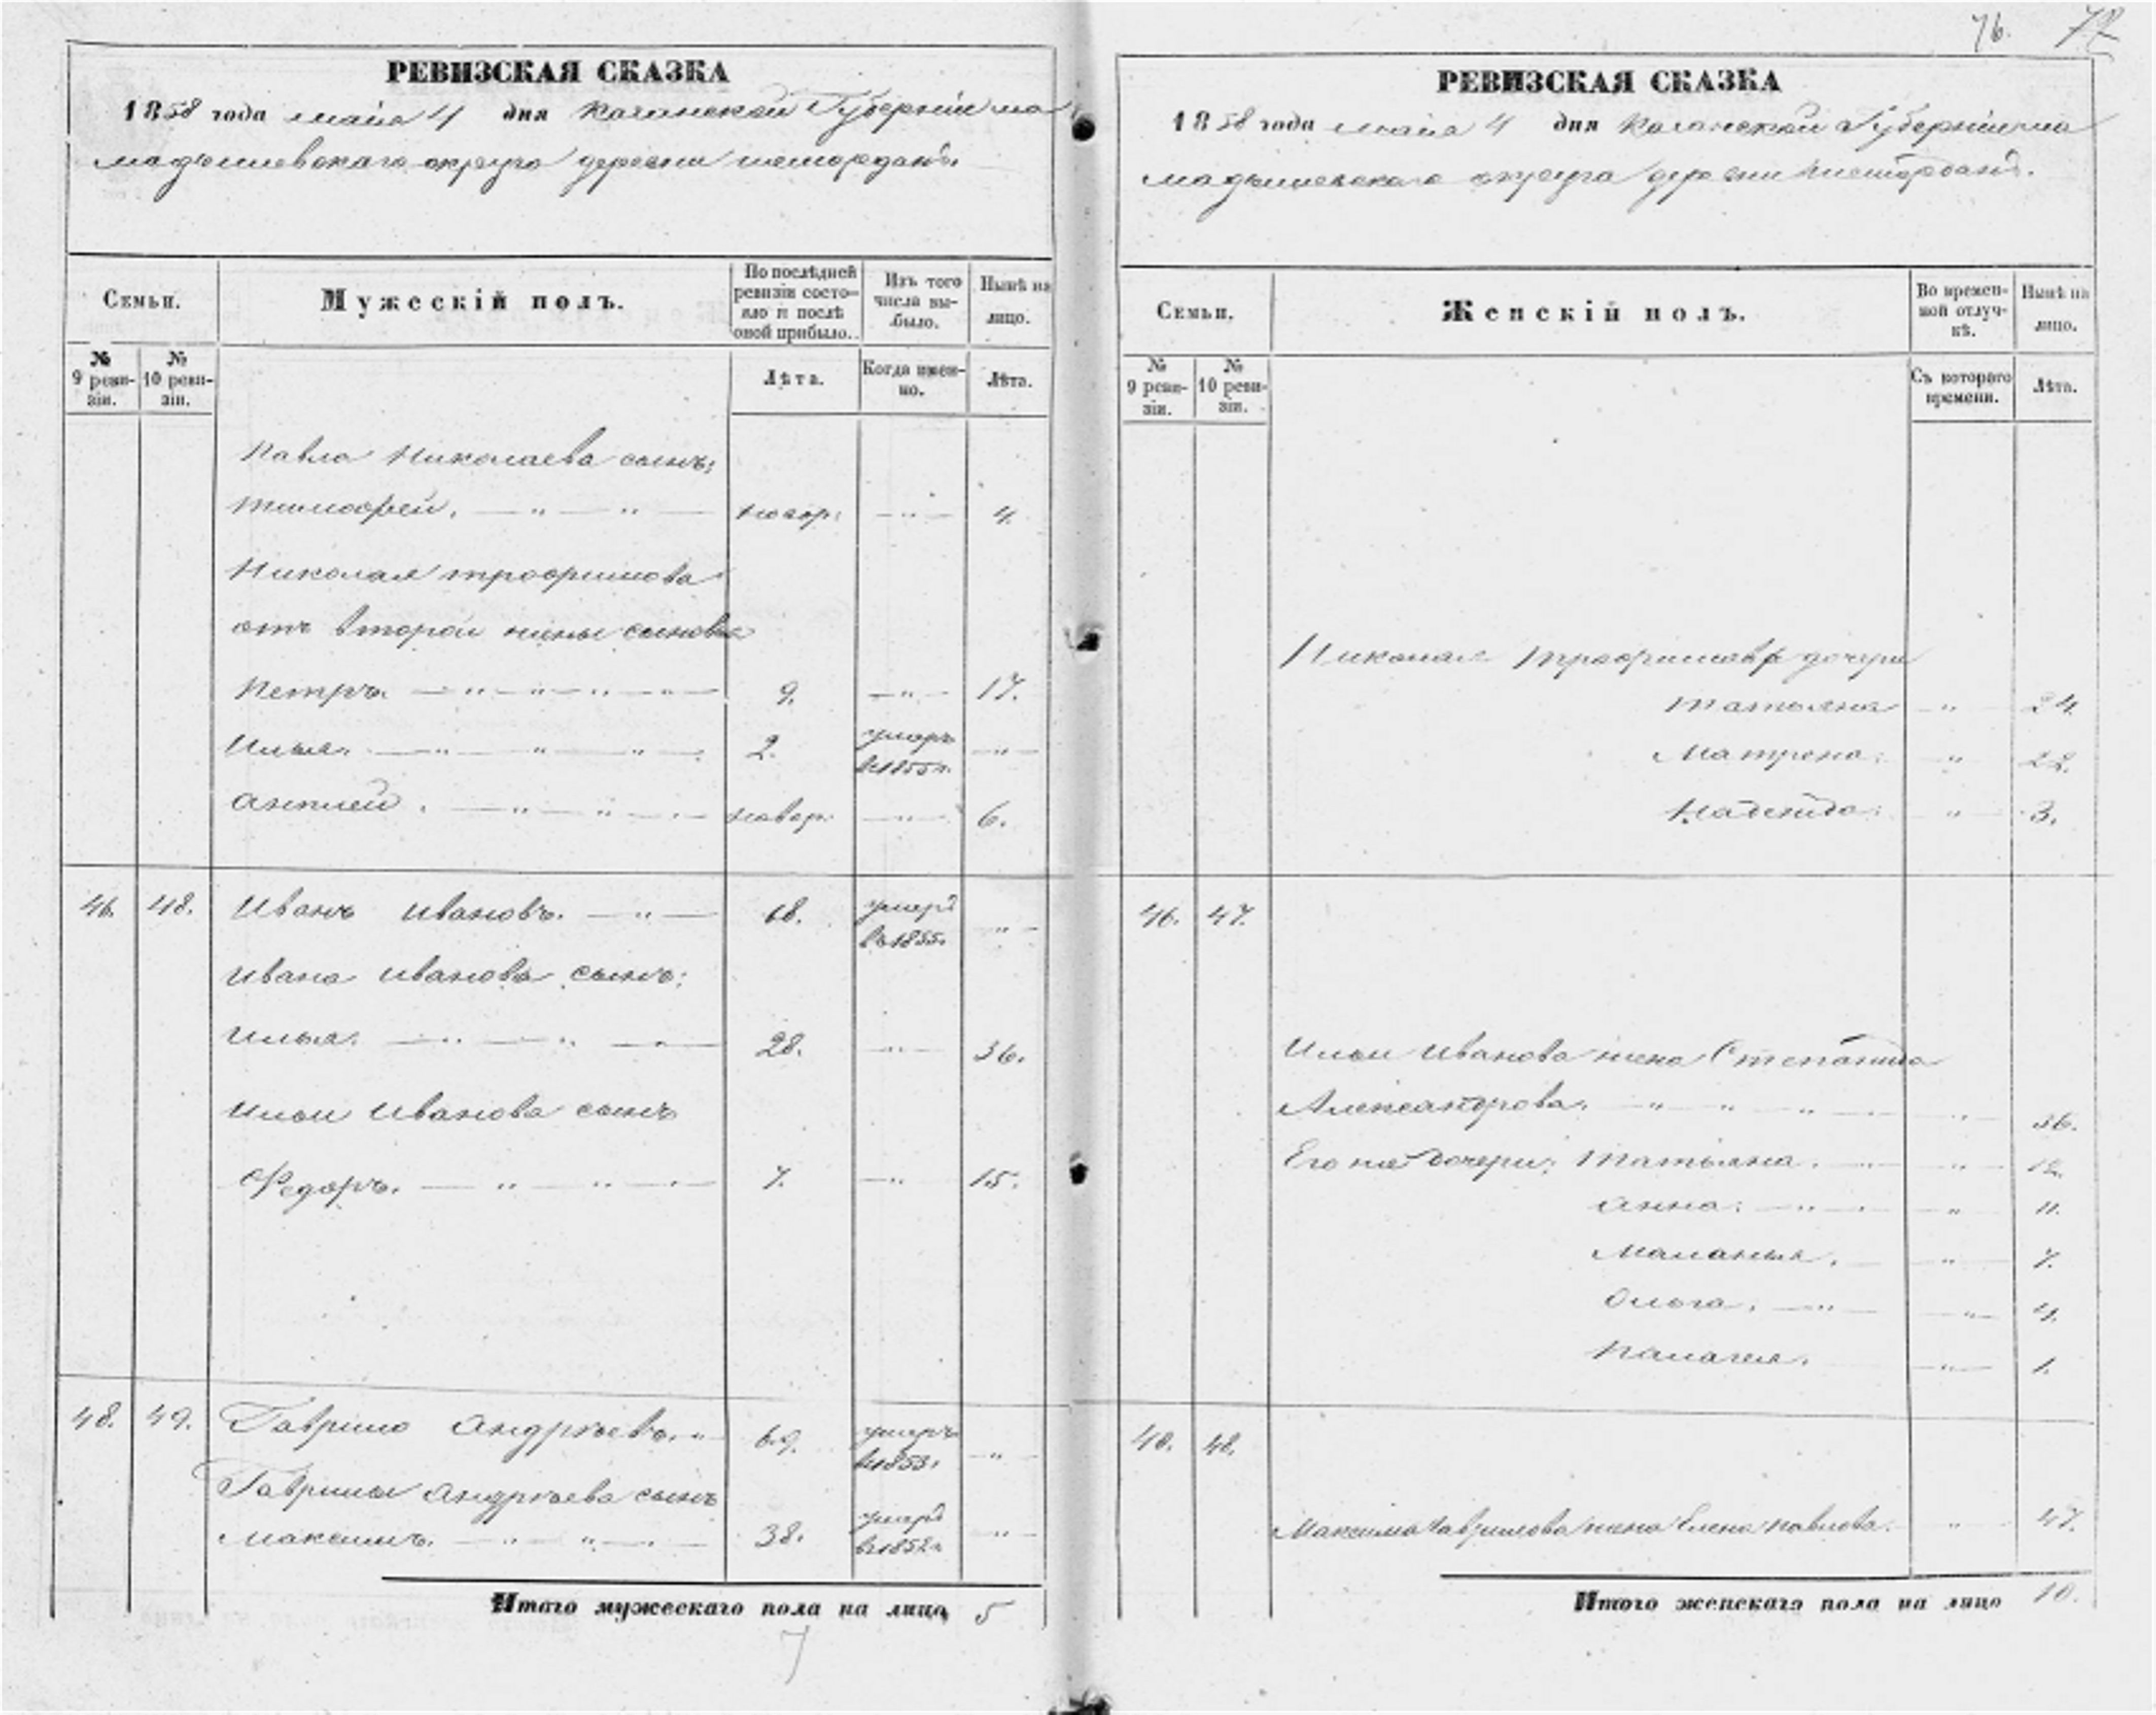 76. 72
РЕВИЗСКАЯ СКАЗКА
1858 года маiа 4 дня Казанской Губернiи ма
мадышевскаго округа деревни шемордакъ.
Семьи.
Мужескiй полъ.
По послѣдней ревизiи состояло и послѣ оной прибыло.
Изъ того числа выбыло.
Нынѣ на лицо.
№ 9 ревизiи.
№ 10 ревизiи.
Лѣта.
Когда именно.
Лѣта.
Павла Николаева сынъ:
Тимофей. новор. 4.
Николая трофимова
отъ второй жены сыновья
Петръ. 9. 17.
Илья. 2. умеръ в 1855 г.
новор. 6.
46. 48. Иванъ Ивановъ. 68. умеръ в 1855.
Ивана Иванова сынъ:
Илья. 28. 36.
Ильи Иванова сынъ
Федоръ. 7. 15.
48. 49. Гаврило Андрѣевъ. 69. умеръ в 1853.
Гаврилы Андрѣева сынъ
Максимъ. 38. умеръ в 1852 г.
Итого мужескаго пола на лицо 5
7
РЕВИЗСКАЯ СКАЗКА
1858 года маiа 4 дня Казанской Губернiи ма
мадышевскаго округа деревни шемордакъ.
Семьи.
Женскiй полъ.
Во временной отлучкѣ.
Нынѣ на лицо.
№ 9 ревизiи.
№ 10 ревизiи.
Съ котораго времени.
Лѣта.
Николая Трофимова дочери
Татьяна 24.
Матрена. 22.
Надежда. 3.
46. 47.
Ильи Иванова жена Степанида
Александрова. 36.
Его же дочери: Татьяна. 12.
Анна. 11.
Маланья. 7.
Ольга. 4.
Палагея. 1.
48. 48.
Максима Гаврилова жена Елена Павлова. 47.
Итого женскаго пола на лицо 10.